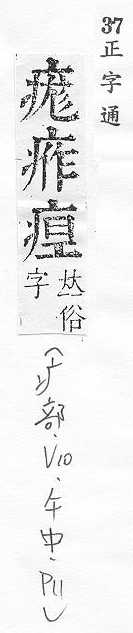 37正字通
痄
𠀤俗
字
(疒部·V10·午中·P11)